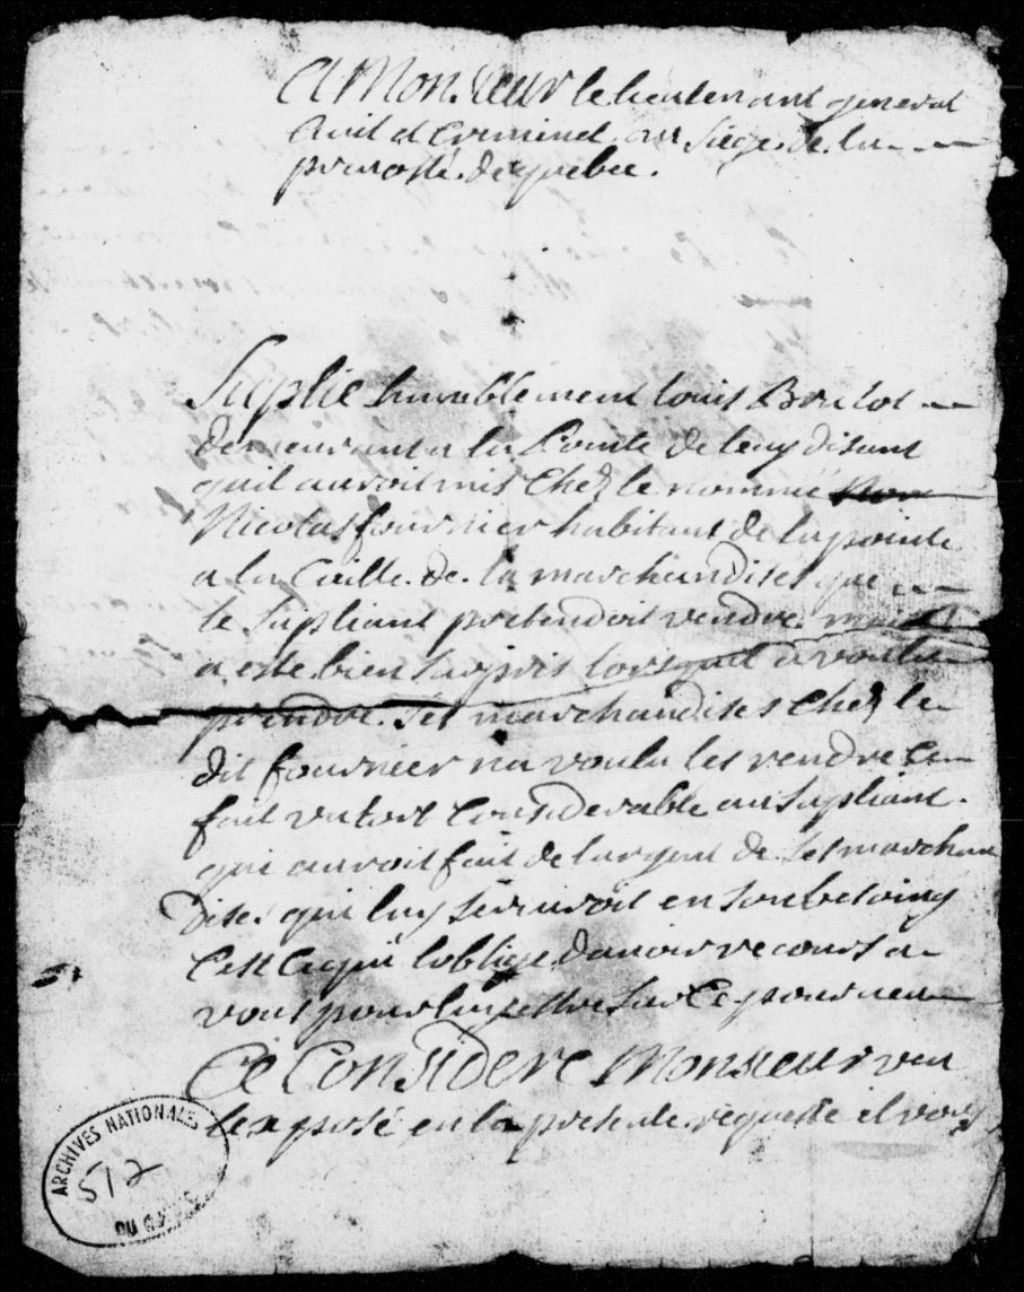 A Monsieur le lieutenant general
Civil et Criminel au siege de la
prevosté de quebec.
Suplie humblement louis Boulot
demeurant a la Pointe de levy disant
quil auroit mis chez le nommé
Nicolas fournier habitant de la pointe
a la Caille de la marchandises que
le supliant pretendoit vendre mais
a esté bien surpris lorsquil a voulu
prendre ses marchandises chez le
dit fournier na voulu les rendre ce
fait un tort Considerable au supliant
qui auroit fait de largent de ses marchan
dises qui luy serviroit en son besoing
Cest ce qui loblige davoir recours a
vous pour luy estre sur ce pourveu
Ce Consideré Monsieur veu
lexposé en la presente requeste il vous
ARCHIVES NATIONALES
512
DU QUEBEC